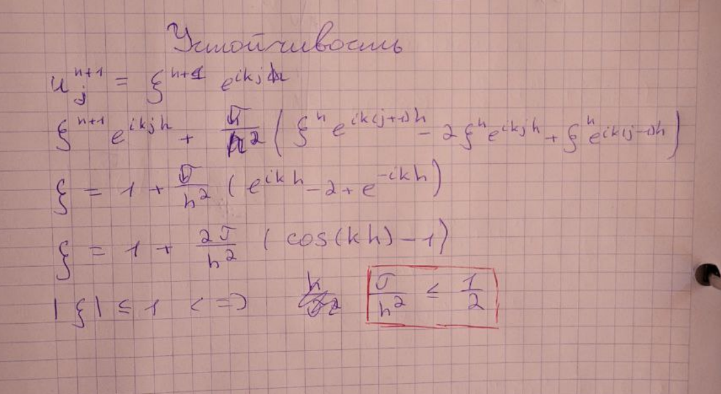 Устойчивость
u_j^{n+1} = ξ^{n+1} e^{ikjh}
ξ^{n+1} e^{ikjh} + τ/h² ( ξ^n e^{ik(j+1)h} − 2ξ^n e^{ikjh} + ξ^n e^{ik(j−1)h} )
ξ = 1 + τ/h² ( e^{ikh} − 2 + e^{−ikh} )
ξ = 1 + 2τ/h² ( cos(kh) − 1 )
|ξ| ≤ 1 <=> τ/h² ≤ 1/2